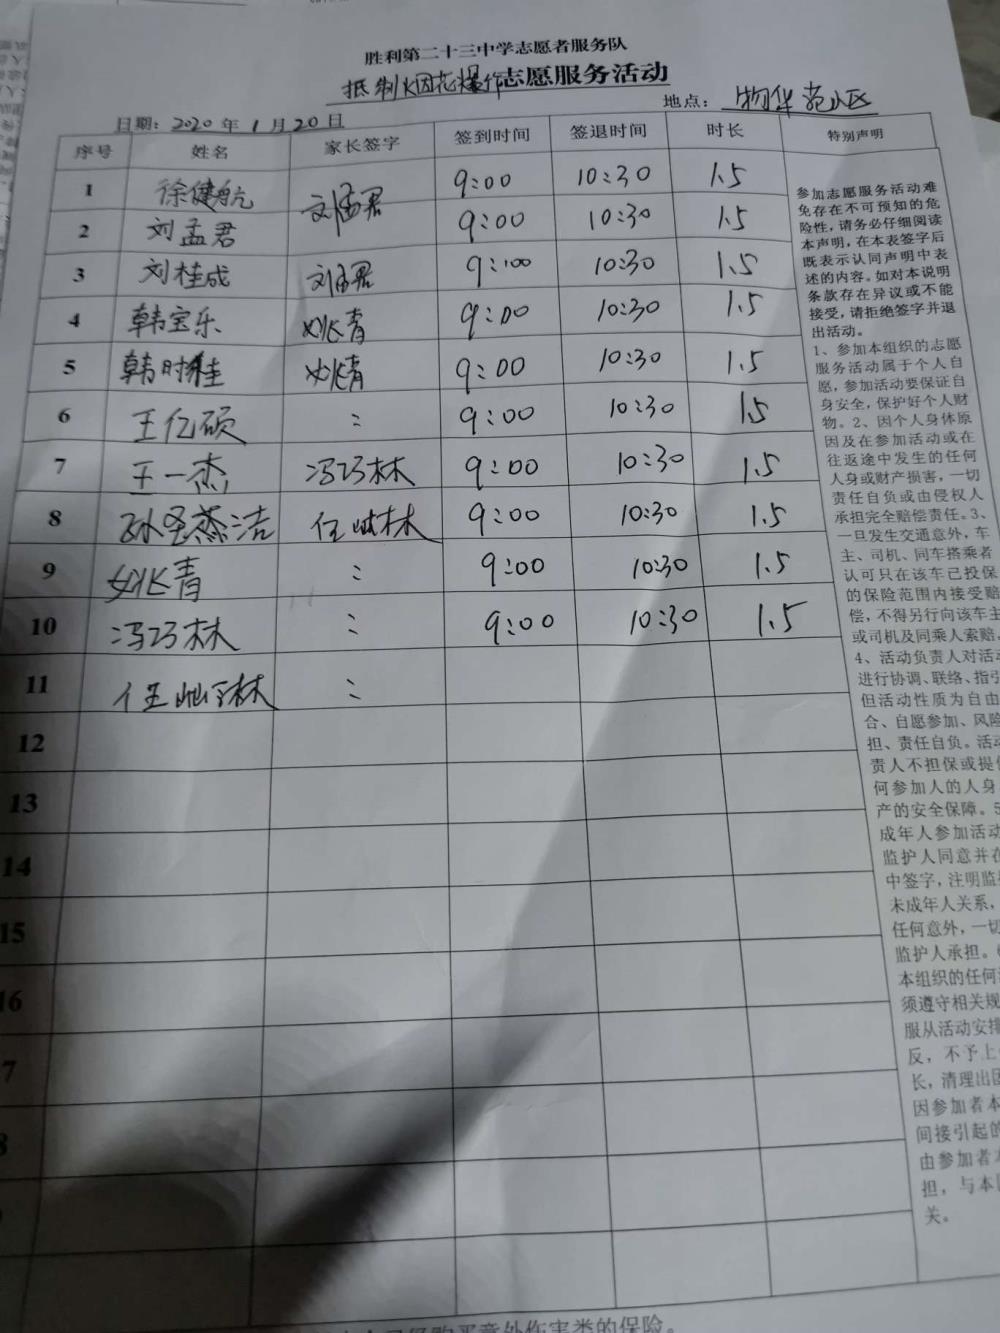 胜利第二十三中学志愿者服务队
抵制烟花爆竹志愿服务活动
日期：2020年1月20日 地点：物华苑小区
序号 姓名 家长签字 签到时间 签退时间 时长 特别声明
1 徐健航 刘孟君 9:00 10:30 1.5
2 刘孟君 9:00 10:30 1.5
3 刘桂成 刘孟君 9:00 10:30 1.5
4 韩宝乐 姚青 9:00 10:30 1.5
5 韩时佳 姚青 9:00 10:30 1.5
6 王亿硕 9:00 10:30 1.5
7 王一杰 冯巧林 9:00 10:30 1.5
8 9:00 10:30 1.5
9 姚青 9:00 10:30 1.5
10 冯巧林 9:00 10:30 1.5
11
12
13
14
15
16
7
8
参加志愿服务活动难
免存在不可预知的危
险性，请务必仔细阅读
本声明，在本表签字后
既表示认同声明中表
述的内容。如对本说明
条款存在异议或不能
接受，请拒绝签字并退
出活动。
1、参加本组织的志愿
服务活动属于个人自
愿，参加活动要保证自
身安全，保护好个人财
物。2、因个人身体原
因及在参加活动或在
往返途中发生的任何
人身或财产损害，一切
责任自负或由侵权人
承担完全赔偿责任。3、
一旦发生交通意外，车
主、司机、同车搭乘者
认可只在该车已投保
的保险范围内接受赔
偿，不得另行向该车主
或司机及同乘人索赔。
4、活动负责人对活动
进行协调、联络、指引
但活动性质为自由
合、自愿参加、风险
担、责任自负。活动
责人不担保或提供
何参加人的人身
产的安全保障。5
成年人参加活动
监护人同意并在
中签字，注明监
未成年人关系，
任何意外，一切
监护人承担。
本组织的任何
须遵守相关规
服从活动安排
反，不予上
长，清理出团
因参加者本
间接引起的
由参加者
担，与本
关。
购买意外伤害类的保险。